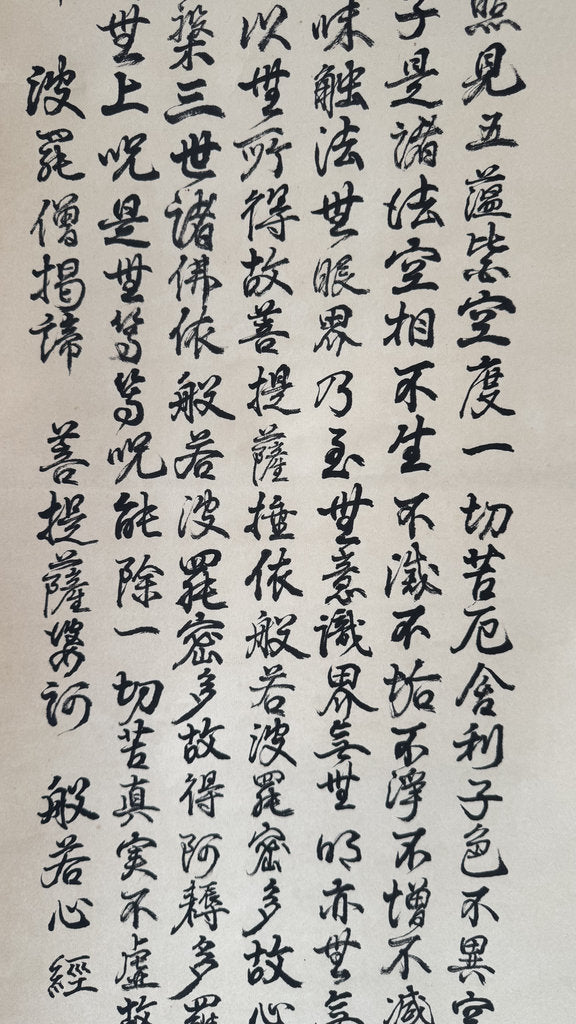 照見五蘊皆空度一切苦厄舍利子色不異空
子是諸法空相不生不滅不垢不淨不增不減
味触法無眼界乃至無意識界無無明亦無無
以無所得故菩提薩埵依般若波羅蜜多故心
槃三世諸佛依般若波羅蜜多故得阿耨多羅
無上呪是無等等呪能除一切苦真実不虚故
波羅僧揭諦 菩提薩婆訶 般若心經